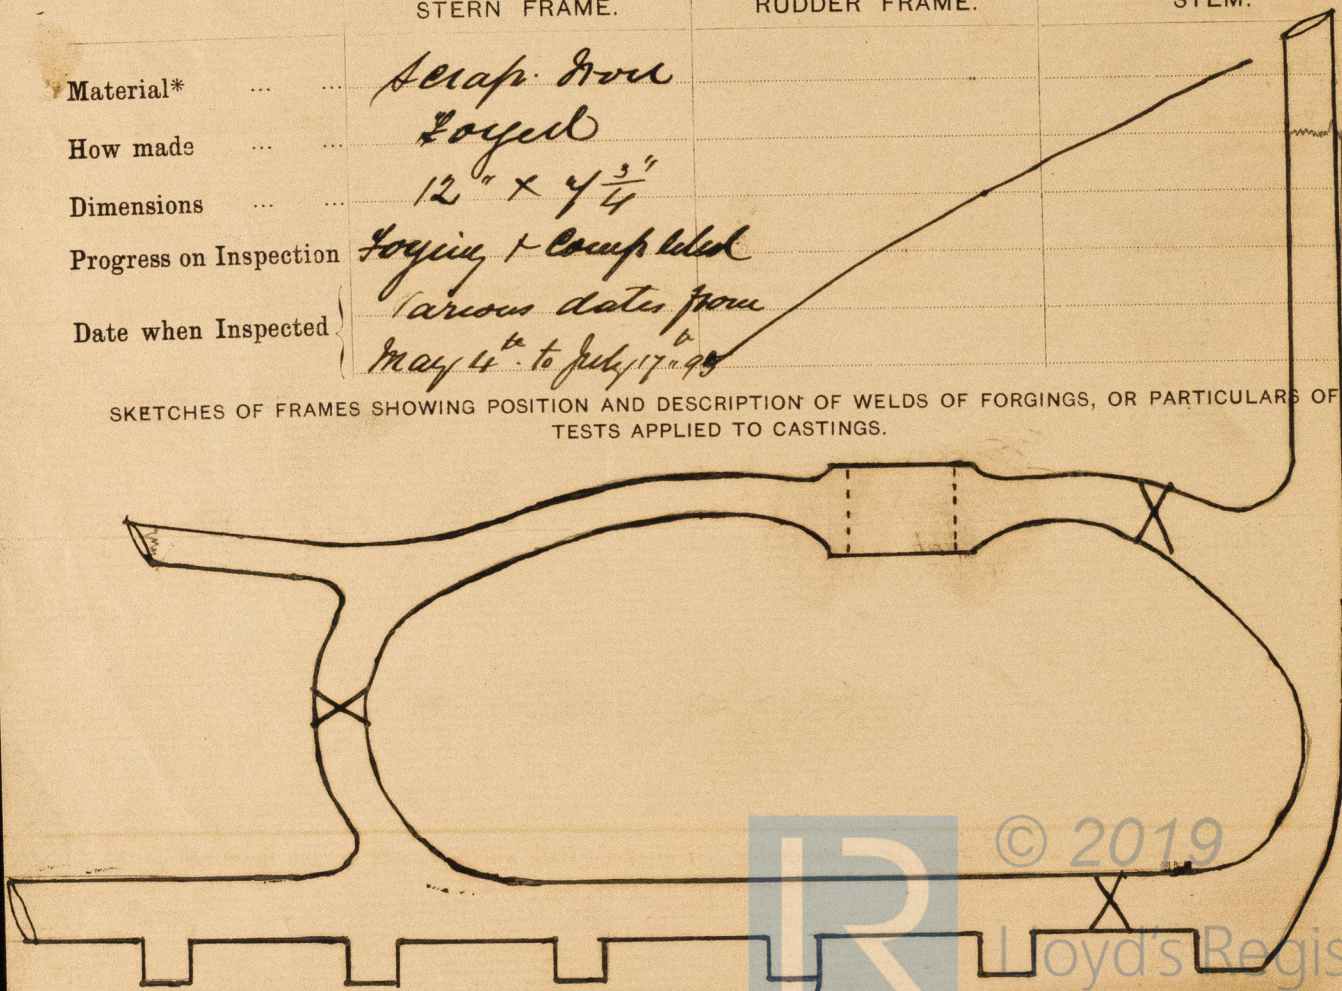 STERN FRAME. RUDDER FRAME. STEM.
Material* ... ... Scrap Iron
How made ... ... Forged
Dimensions ... ... 12" × 7 3/4"
Progress on Inspection Forging + Completed
Date when Inspected Various dates from
May 4th to July 17th 95
SKETCHES OF FRAMES SHOWING POSITION AND DESCRIPTION OF WELDS OF FORGINGS, OR PARTICULARS OF
TESTS APPLIED TO CASTINGS.
© 2019
Lloyd's Regis